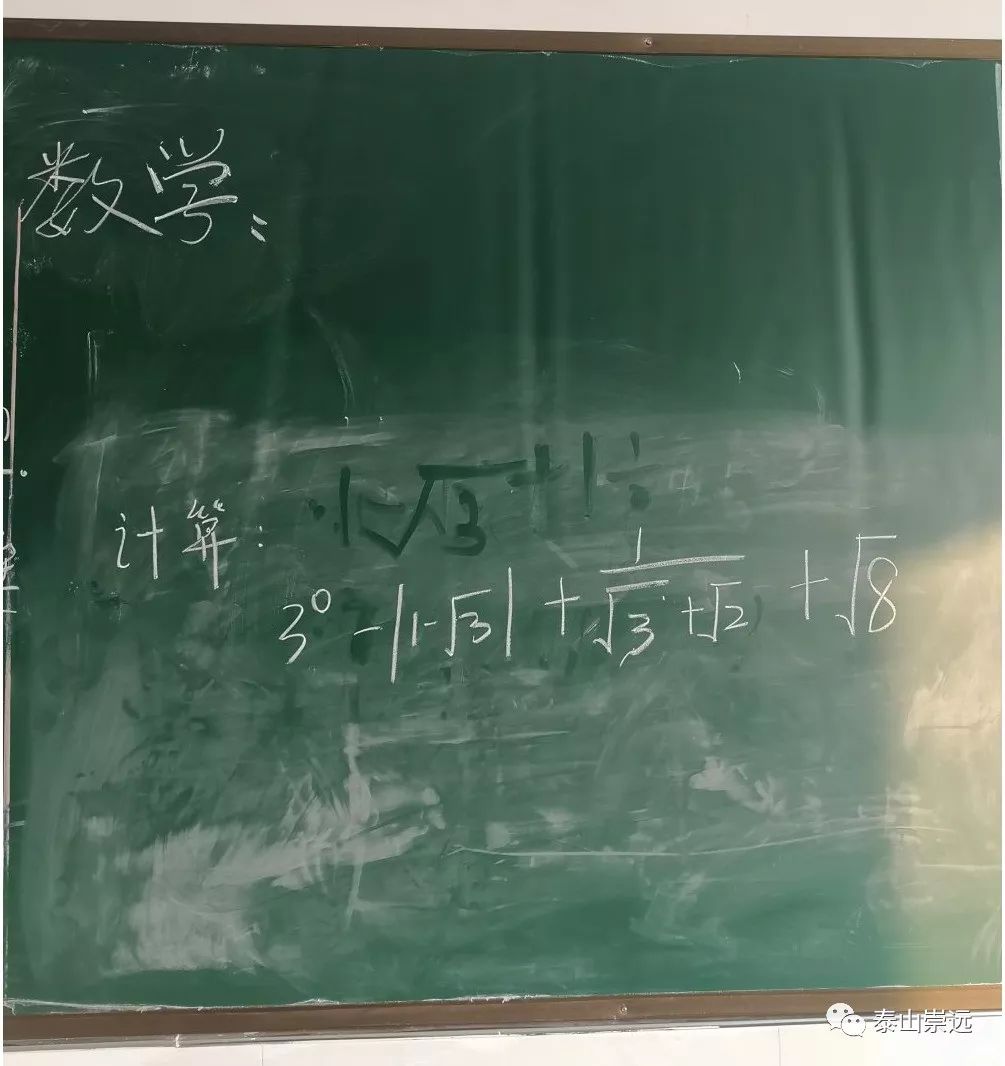 数学:
·|-√3+1÷
计算:
3⁰-|1-√3|+1/(√3+√2)+√8
泰山崇远